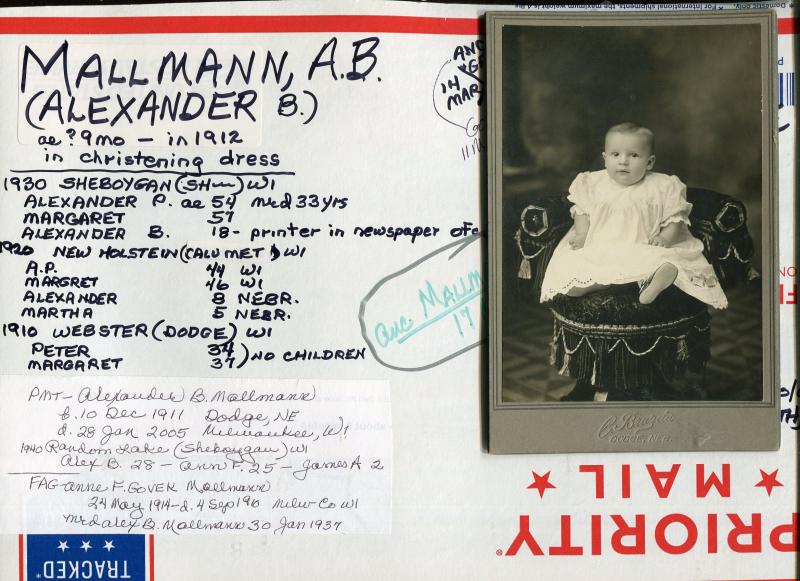 MALLMANN, A.B.
(ALEXANDER B.)
ae ? 9mo - in 1912
in christening dress
1930 SHEBOYGAN (SH ) WI
ALEXANDER P. ae 54 mrd 33 yrs
MARGARET 57
ALEXANDER B. 18 - printer in newspaper ofc
1920 NEW HOLSTEIN (CALUMET) WI
A.P. 44 WI
MARGRET 46 WI
ALEXANDER 8 NEBR.
MARTHA 5 NEBR.
1910 WEBSTER (DODGE) WI
PETER 34
MARGARET 37) NO CHILDREN
PMT- Alexander B. Mallmann
b. 10 Dec 1911 Dodge, NE
d. 28 Jan 2005 Milwaukee, WI
1940 Random Lake (Sheboygan) WI
Alex B. 28 - Ann F. 25 - James A 2
FAG- Anne F. GOVEK Mallmann
24 May 1914 - d. 4 Sep Milw Co WI
mrd Alex B. Mallmann 30 Jan 1937
AND
14
MAR
anc. MALLM
17
DODGE, NEB.
PRIORITY
MAIL
TRACKED